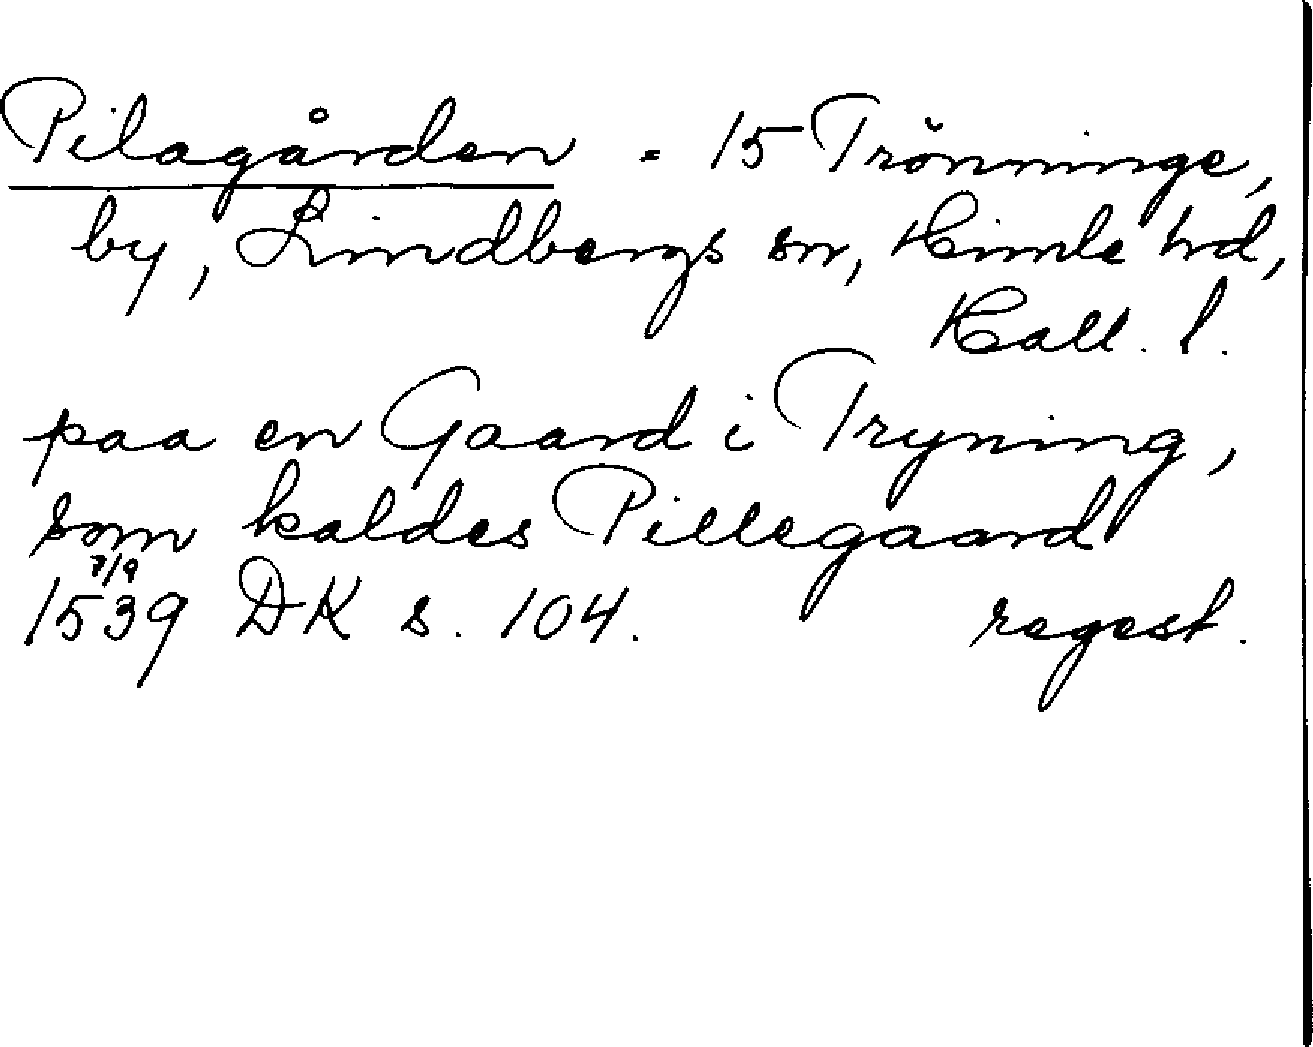 Pilagården = 15 Trönninge,
by, Lindbergs sn, Himle hd,
Hall. l.
paa en Gaard i Tryning,
som kaldes Pillegaard
7/9
1539 DK s. 104. regest.